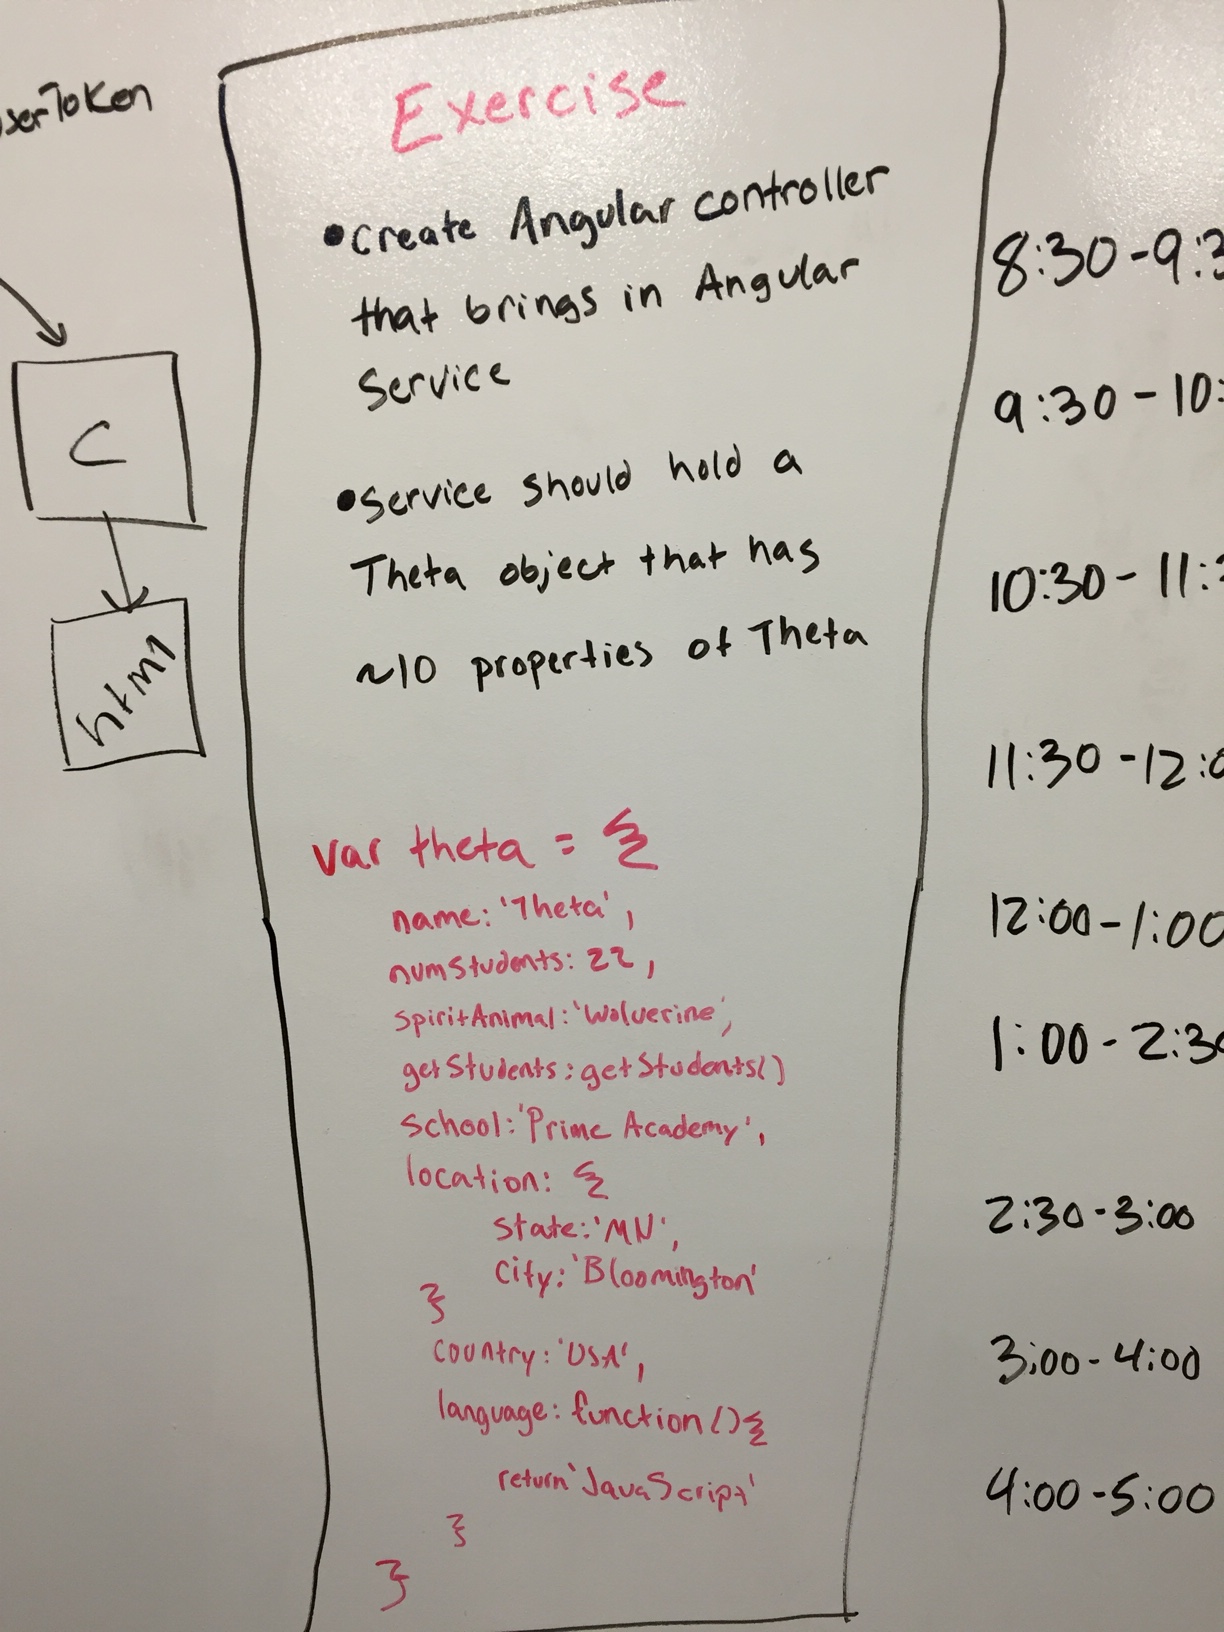 Exercise
•Create Angular controller
that brings in Angular
Service
•Service should hold a
Theta object that has
~10 properties of Theta
var theta = {
name: 'Theta',
numStudents: 22,
spiritAnimal: 'Wolverine',
getStudents: getStudents()
school: 'Prime Academy',
location: {
state: 'MN',
city: 'Bloomington'
}
country: 'USA',
language: function(){
return 'JavaScript'
}
}
userToken
C
html
8:30-9:3
9:30-10:
10:30-11:
11:30-12:0
12:00-1:00
1:00-2:30
2:30-3:00
3:00-4:00
4:00-5:00